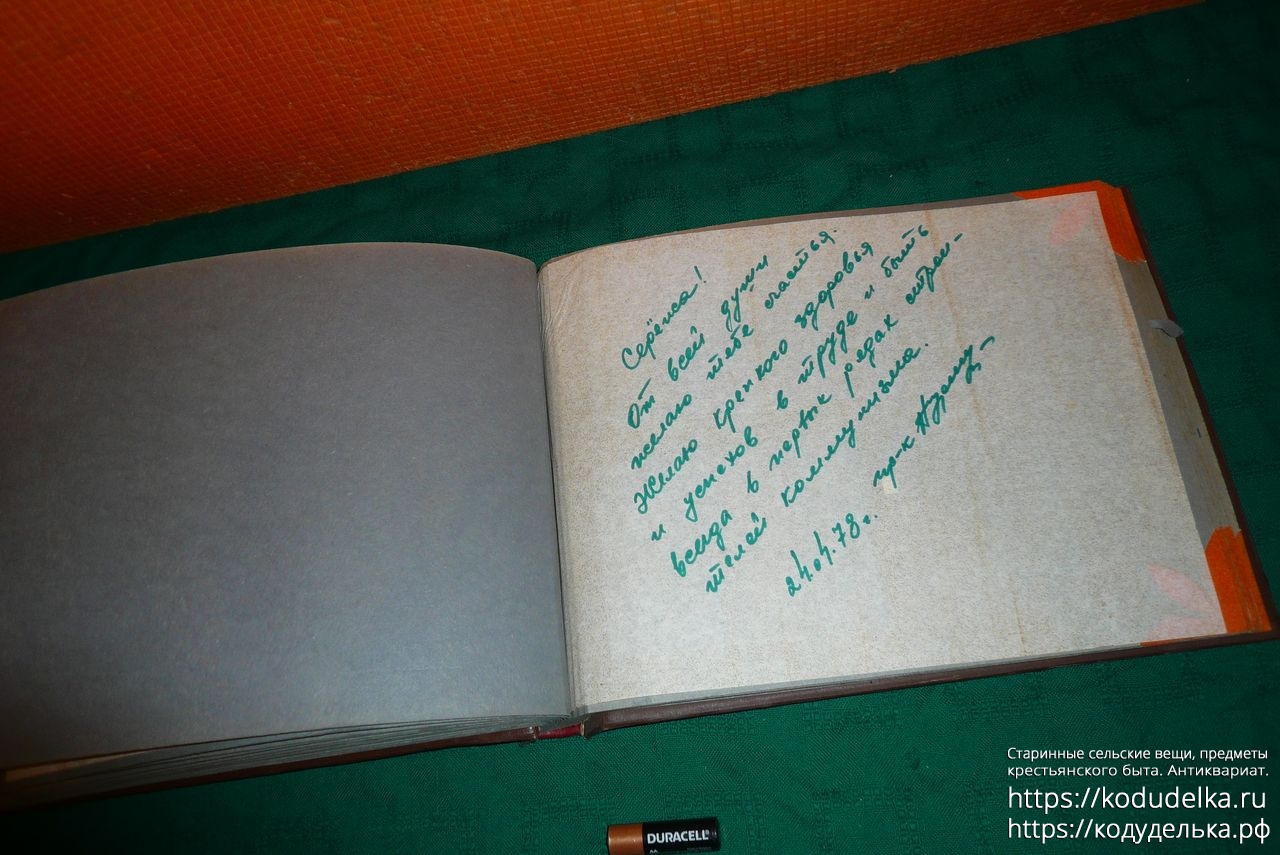 Серёжа!
От всей души
желаю тебе счастья.
Желаю крепкого здоровья
и успехов в труде и быть
всегда в первых рядах строи-
телей коммунизма.
24.04.78 г. пр-к
DURACELL
AA
Старинные сельские вещи, предметы
крестьянского быта. Антиквариат.
https://kodudelka.ru
https://кодуделька.рф